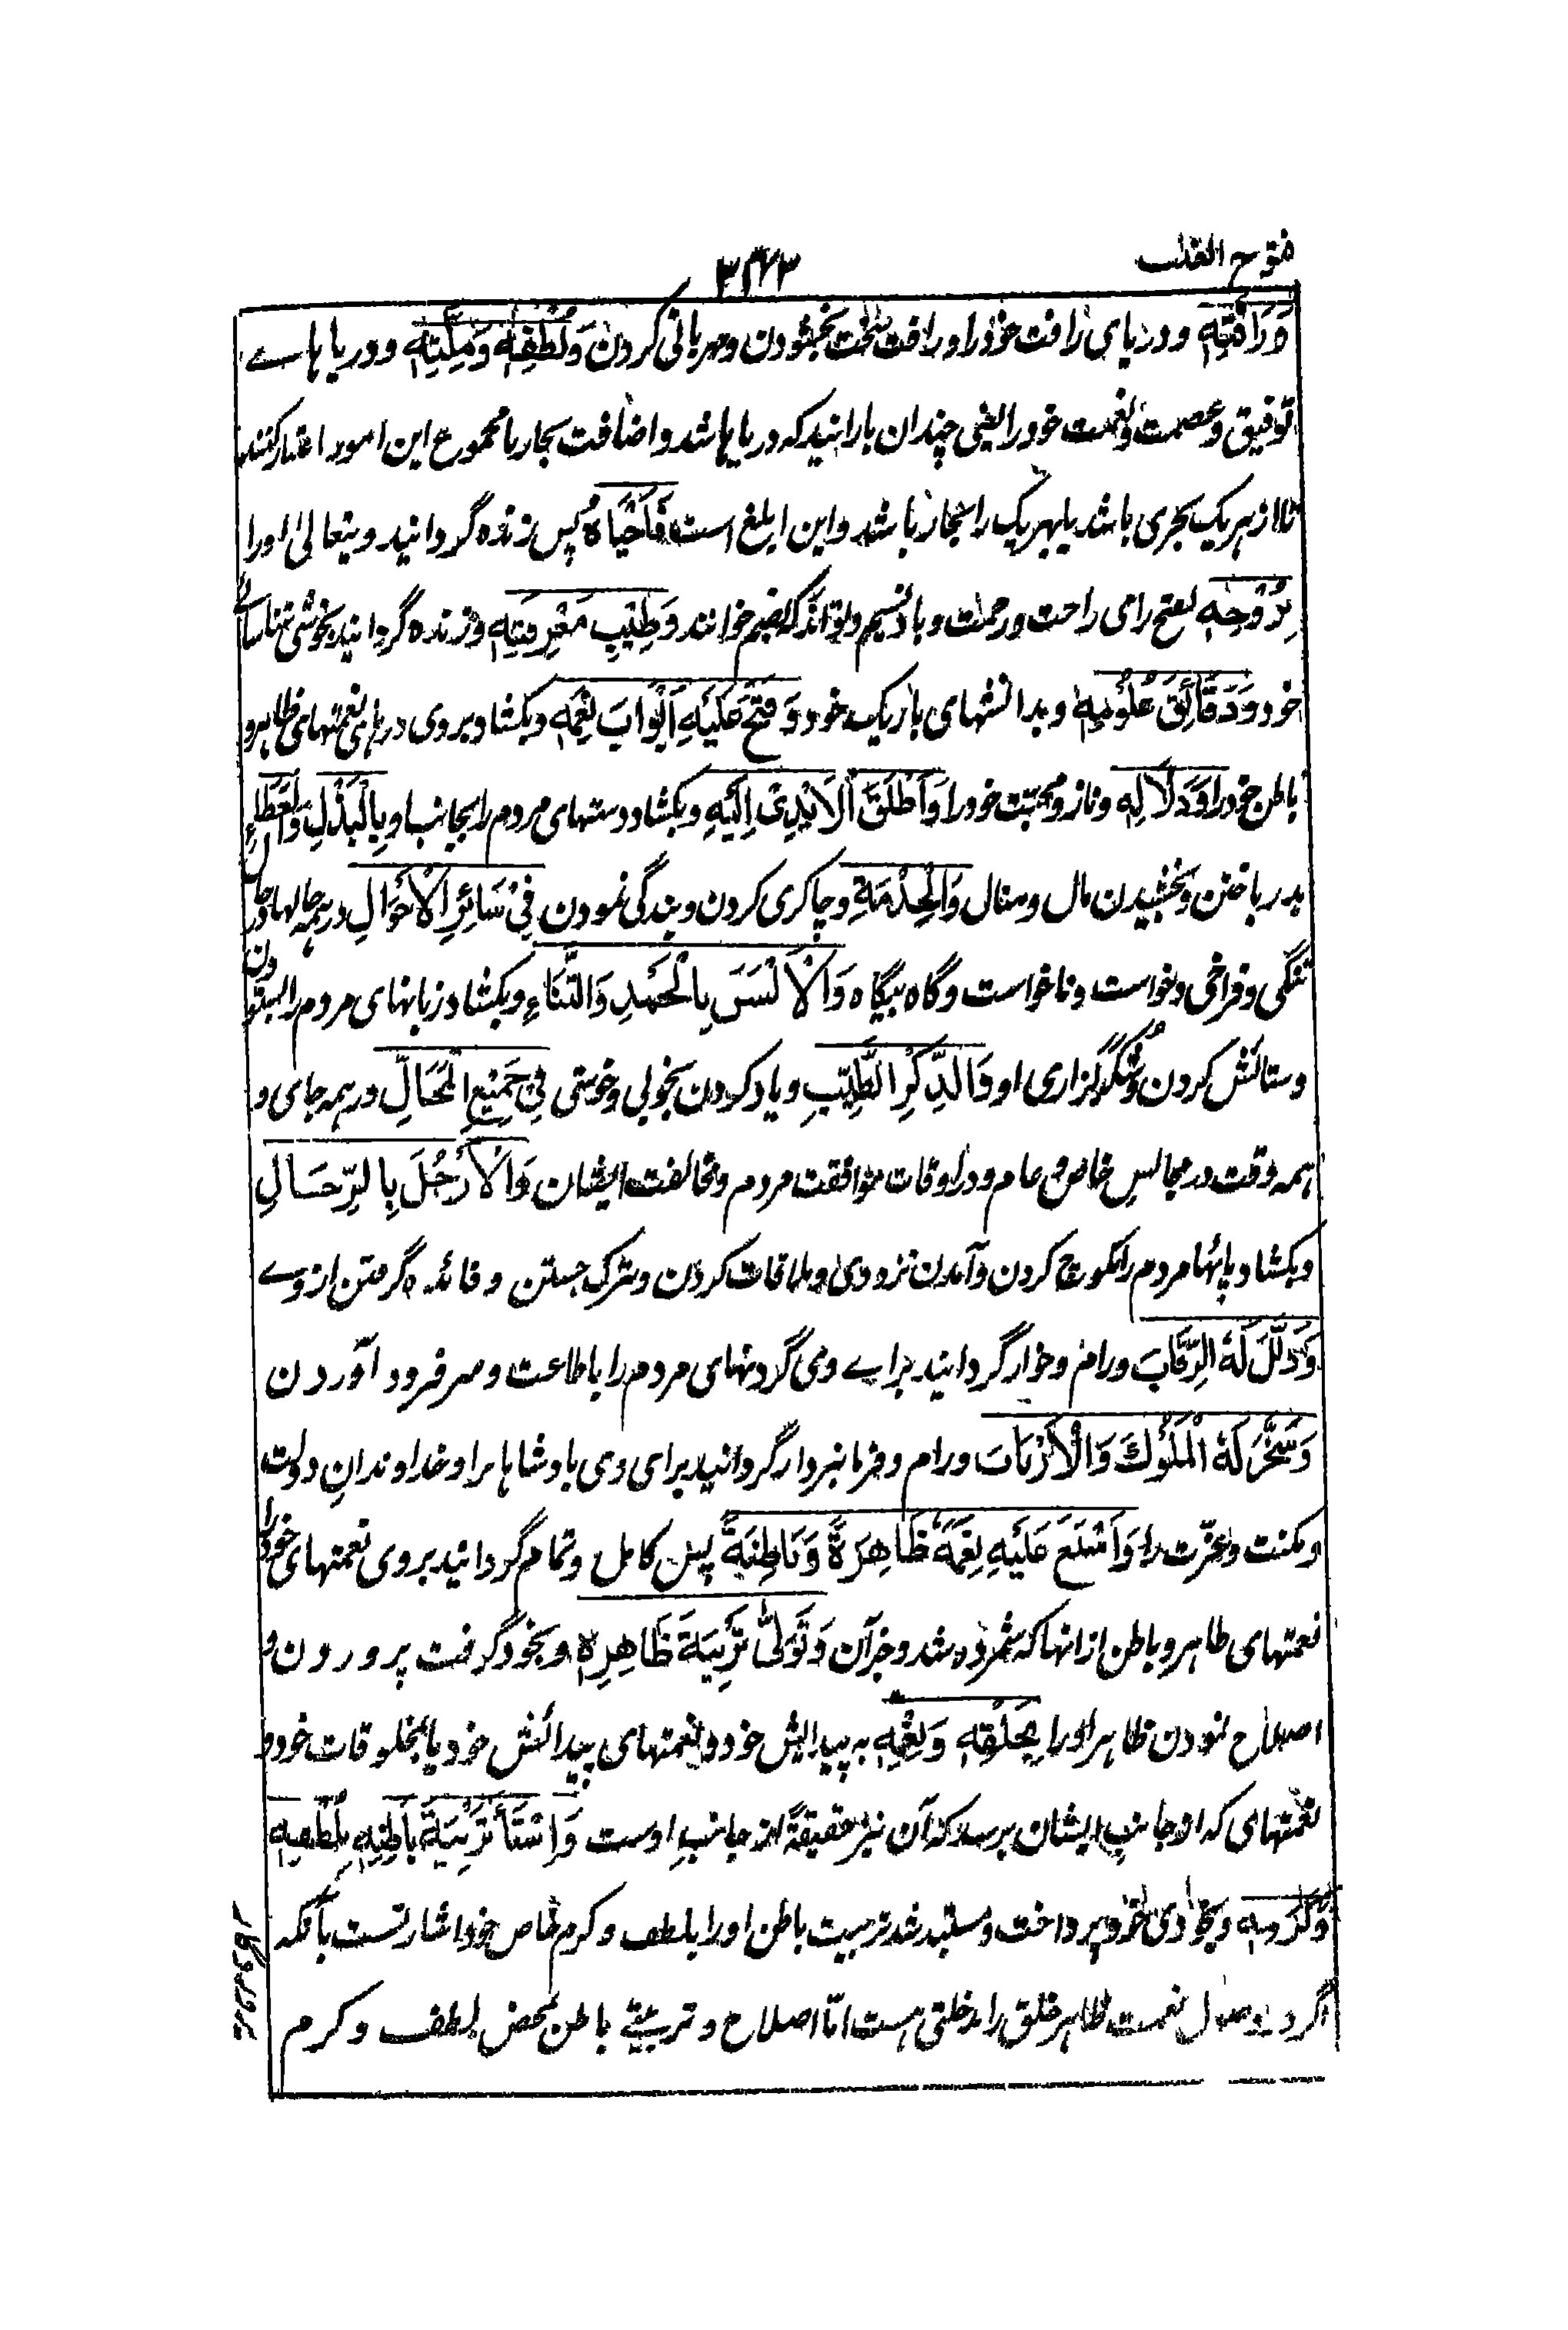 فتوح الغیب
۳۷۳
وَرَأْفَتِهٖ و دریای رافت خود را و رافت سخت بخشودن و مهربانی کردن وَلُطْفِهٖ وَمِنَّتِهٖ و دریا ہاے
توفیق و عصمت و نعمت خود را یعنی چندان بارانید که دریاہا شد و اضافت بحار با مجموع این امور اعتبار کنند
تا از ہریک بحری باشد یا بہریک را بحار باشد و این ابلغ است فَاَحْیَاهُ پس زنده گردانید ویتعالیٰ او را
بِرَوْحِهٖ بفتح رای راحت و رحمت و باد نسیم و تواند که بضم خوانند وَطِیْبِ مَعْرِفَتِهٖ و زنده گردانید بخوشی شناسائے
خود وَدَقَائِقِ عُلُوْمِهٖ و بدانشہای باریک خود وَفَتَحَ عَلَیْهِ اَبْوَابَ نِعَمِهٖ و بکشاد بروی درہای نعمتہای ظاہر و
باطن خود را وَدَلَالِهٖ و ناز و محبت خود را وَاَطْلَقَ الْاَیْدِیَ اِلَیْهِ و بکشاد دستہای مردم را بجانب او بِالْبَذْلِ وَالْعَطَاءِ
بدر باختن و بخشیدن مال و منال وَالْخِدْمَةِ و چاکری کردن و بندگی نمودن فِیْ سَائِرِ الْاَحْوَالِ در ہمہ حالہا در حال
تنگی و فراخی و خواست و ناخواست و گاه بیگاه وَالْاَلْسُنَ بِالْحَمْدِ وَالثَّنَاءِ و بکشاد زبانہای مردم را بستودن
و ستائش کردن و شکرگزاری او وَالذِّكْرِ الطَّیِّبِ و یاد کردن بخوبی و خوشی فِیْ جَمِیْعِ الْمَحَالِّ در ہمہ جای و
ہمہ وقت در مجالس خاص و عام و در اوقات موافقت مردم و مخالفت ایشان وَالْاَرْجُلَ بِالتِّرْحَالِ
و بکشاد پایہا مردم را بکوچ کردن و آمدن نزد وی و ملاقات کردن و تبرک جستن و فائده گرفتن از وے
وَذَلَّلَ لَهُ الرِّقَابَ و رام و خوار گردانید براے وی گردنہای مردم را باطاعت و سر فرود آوردن
وَسَخَّرَ لَهُ الْمُلُوْكَ وَالْاَرْبَابَ و رام و فرمانبردار گردانید برای وی بادشاہا را و خداوندانِ دولت
و مکنت و عزّت را وَاَسْبَغَ عَلَیْهِ نِعَمَهٗ ظَاهِرَةً وَبَاطِنَةً پس کامل و تمام گردانید بروی نعمتہای خود را
نعمتہای ظاہر و باطن از انہا که شمرده شد و جز آن وَتَوَلّٰى تَرْبِیَةَ ظَاهِرِهٖ و بخود گرفت پرورون و
اصلاح نمودن ظاہر او را بِخَلْقِهٖ وَنِعَمِهٖ به پیدایش خود و نعمتہای پیدائش خود یا بمخلوقات خود و
نعمتہای که از جانب ایشان برسد که آن نیز حقیقةً از جانبِ اوست وَاسْتَأْثَرَ تَرْبِیَةَ بَاطِنِهٖ بِلُطْفِهٖ
وَكَرَمِهٖ و بخودی خود پرداخت و مستبد شد تربیت باطن او را بلطف و کرم خاص خود اشارتست بآنکه
اگر در وصول نعمت ظاہر خلق را مدخلتی ہست امّا اصلاح و تربیتے باطن بمحض لطف و کرم